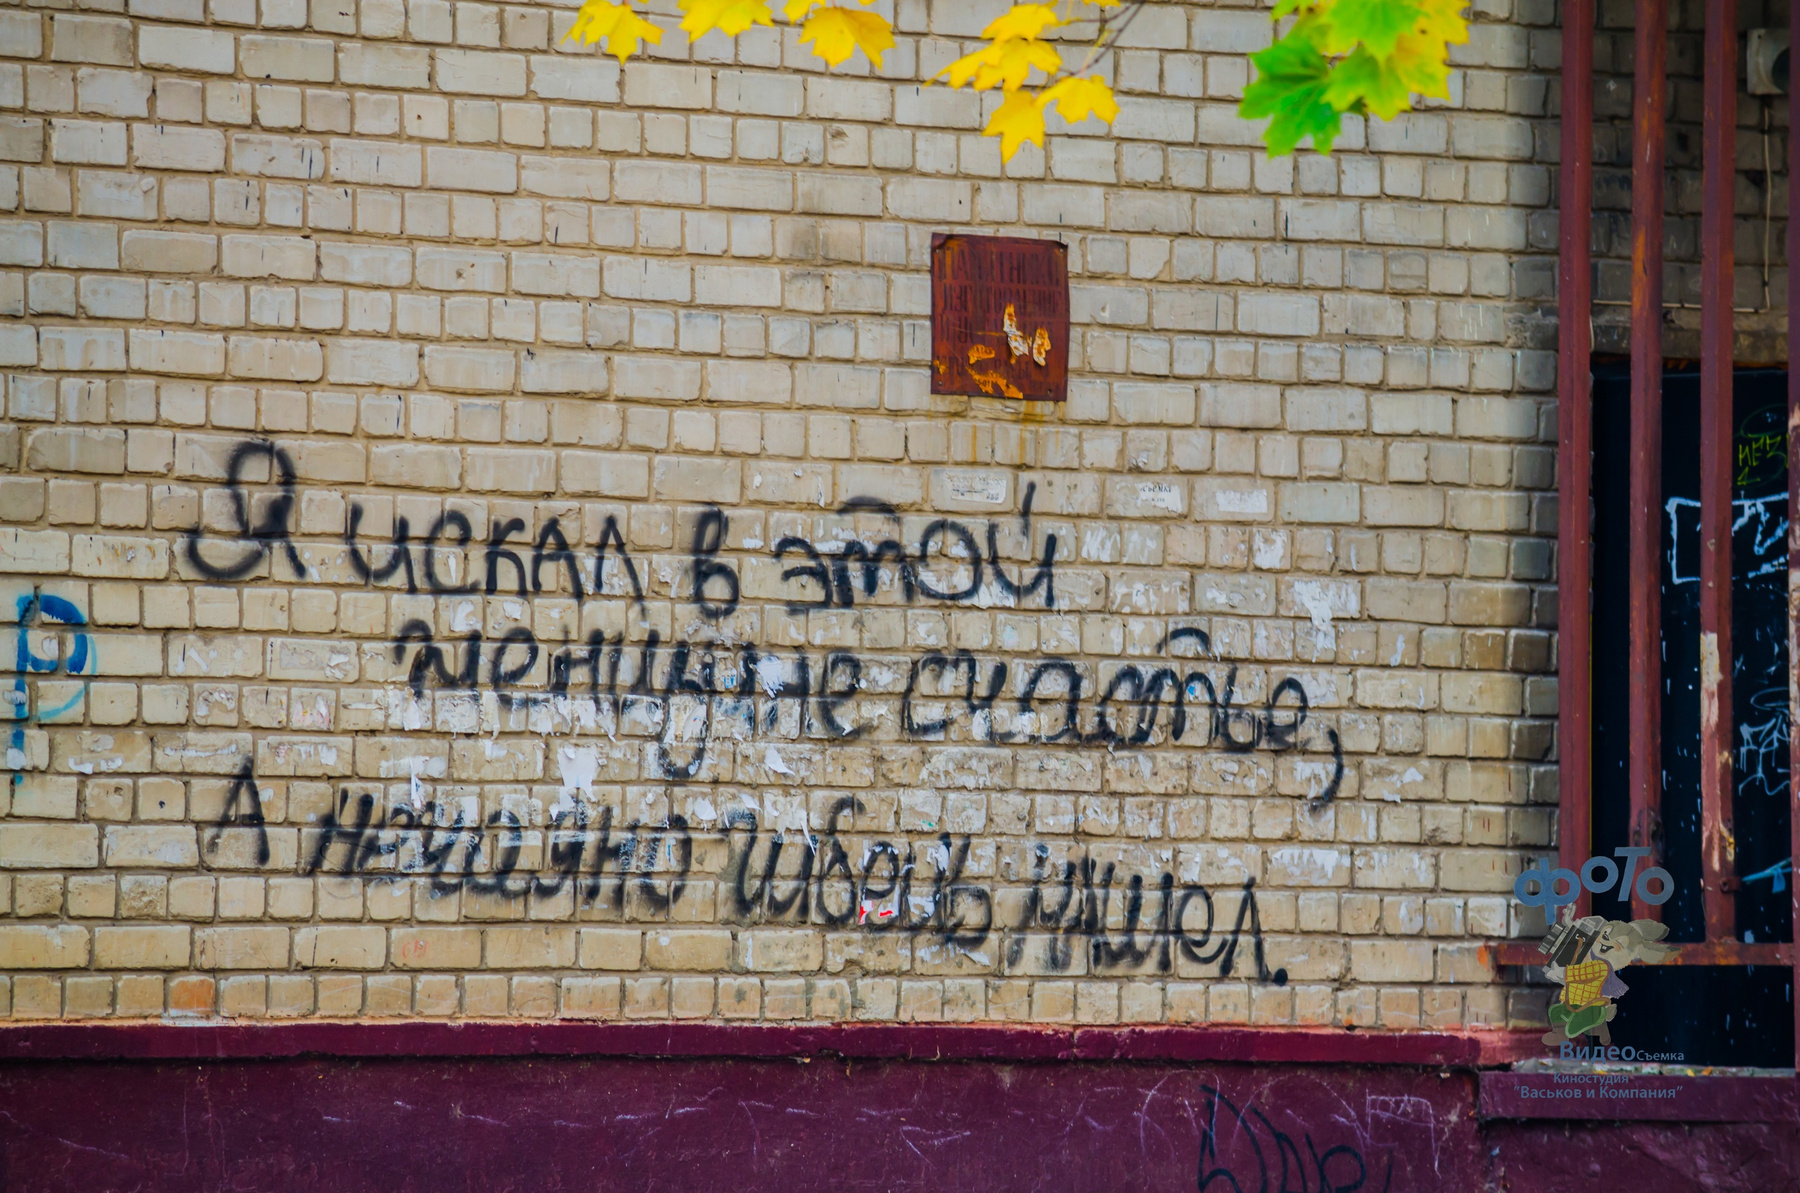 Я искал в этой
женщине счастье,
А нечаянно гибель нашел.
фото
Видеосъемка
Киностудия
"Васьков и Компания"